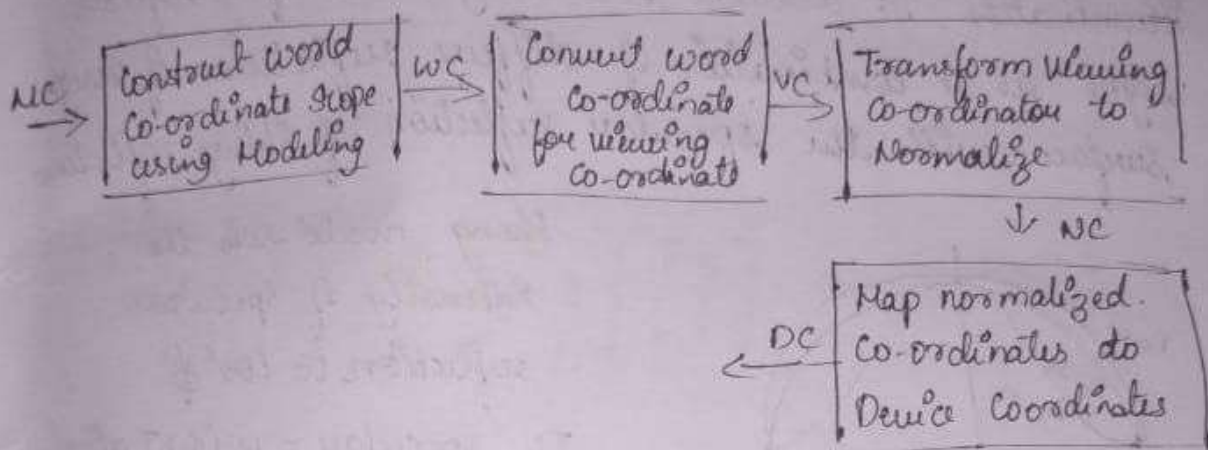 MC
Construct world
Co-ordinate Scope
using Modeling
WC
Convert word
Co-ordinate
for viewing
Co-ordinate
VC
Transform viewing
Co-ordinatou to
Normalize
NC
Map normalized.
Co-ordinates to
Device Coordinates
DC